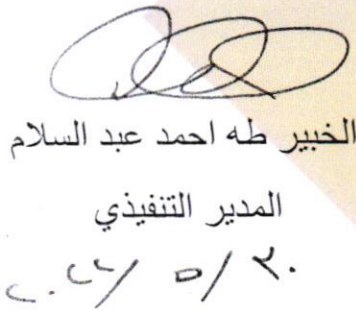 الخبير طه احمد عبد السلام
المدير التنفيذي
٣٠/ ٥ /٢٠٢٢